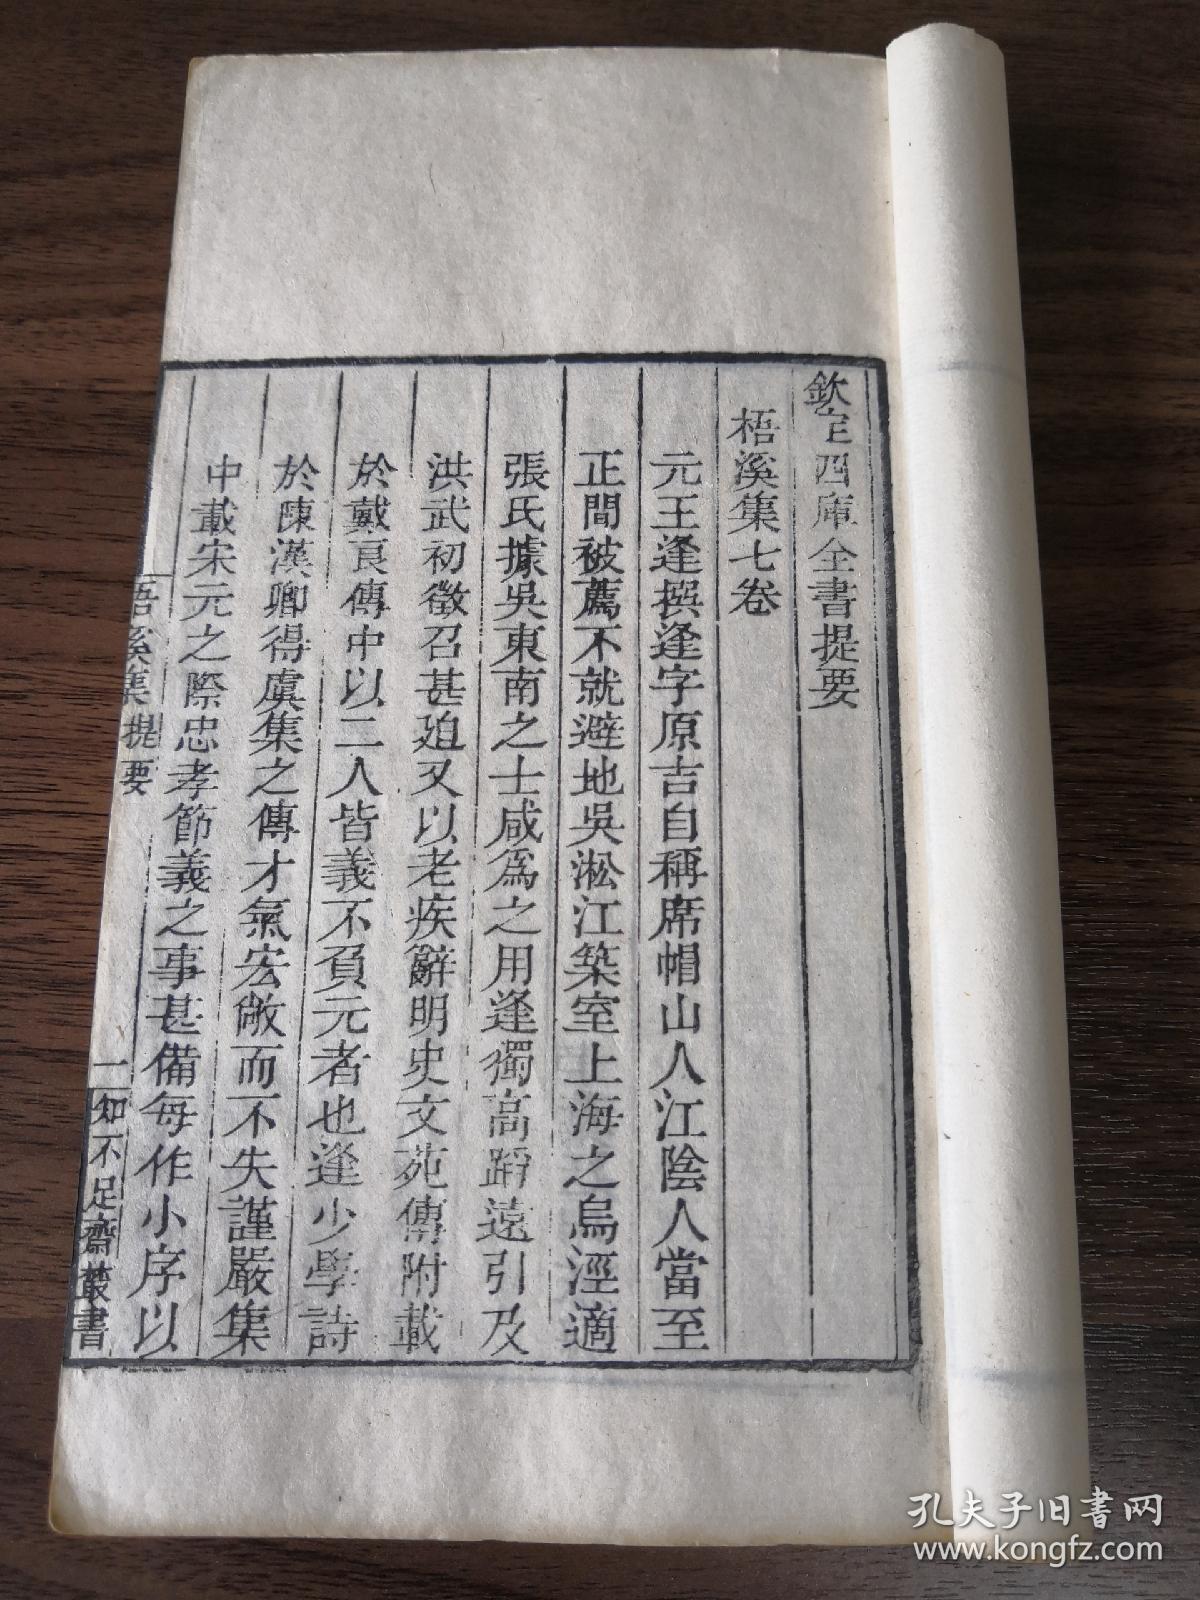 欽定四庫全書提要
梧溪集七卷
元王逢撰逢字原吉自稱席帽山人江陰人當至
正間被薦不就避地吳淞江築室上海之烏涇適
張氏據吳東南之士咸爲之用逢獨高蹈遠引及
洪武初徵召甚廹又以老疾辭明史文苑傳附載
於戴良傳中以二人皆義不負元者也逢少學詩
於陳漢卿得虞集之傳才氣宏敞而不失謹嚴集
中載宋元之際忠孝節義之事甚備每作小序以
梧溪集提要
一
知不足齋叢書
孔夫子旧书网
www.kongfz.com